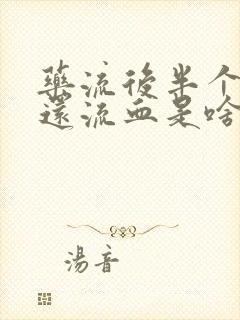 藥流後半个
還流血是啥
湯音